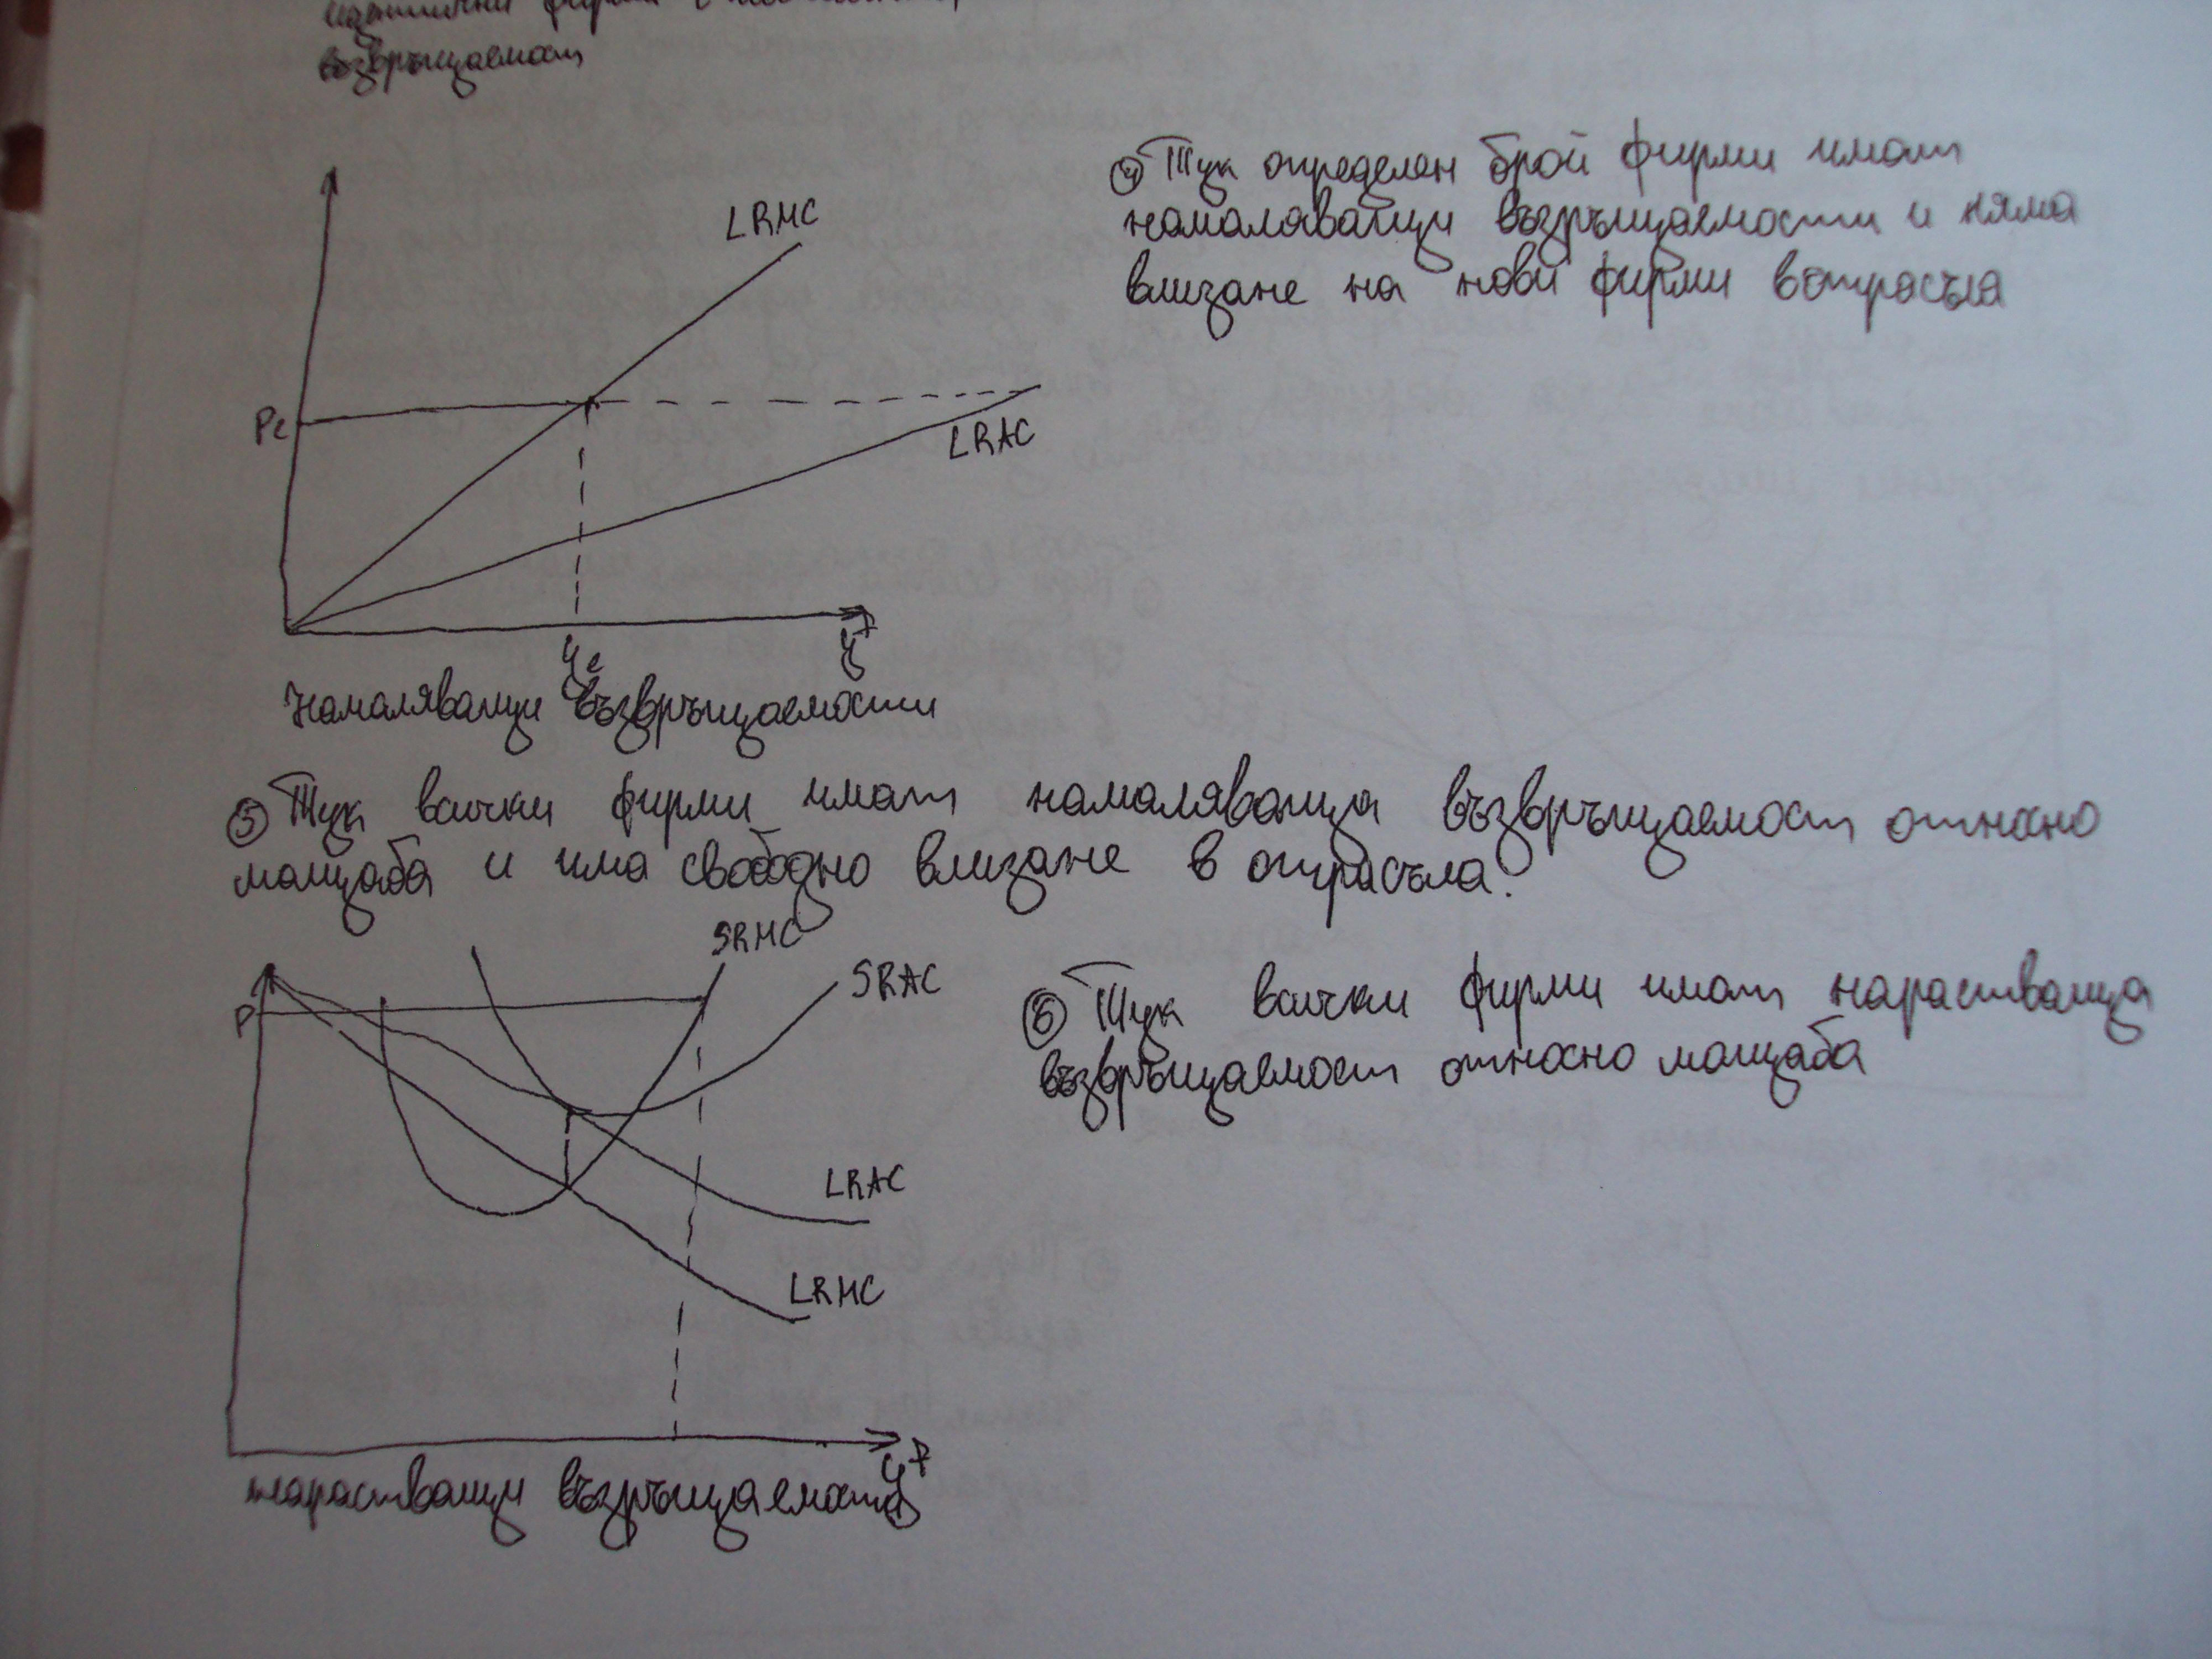 идентични фирми с
възвръщаемост
LRMC
④ Тук определен брой фирми имат
намаляващи възръщаемости и няма
влизане на нови фирми в отрасъла
Pe
LRAC
ye
y
Намаляващи възвръщаемости
⑤ Тук всички фирми имат намаляваща възвръщаемост относно
мащаба и има свободно влизане в отрасъла.
SRMC
SRAC
P
⑥ Тук всички фирми имат нарастваща
възвръщаемост относно мащаба
LRAC
LRMC
y
нарастващи възръщаемости